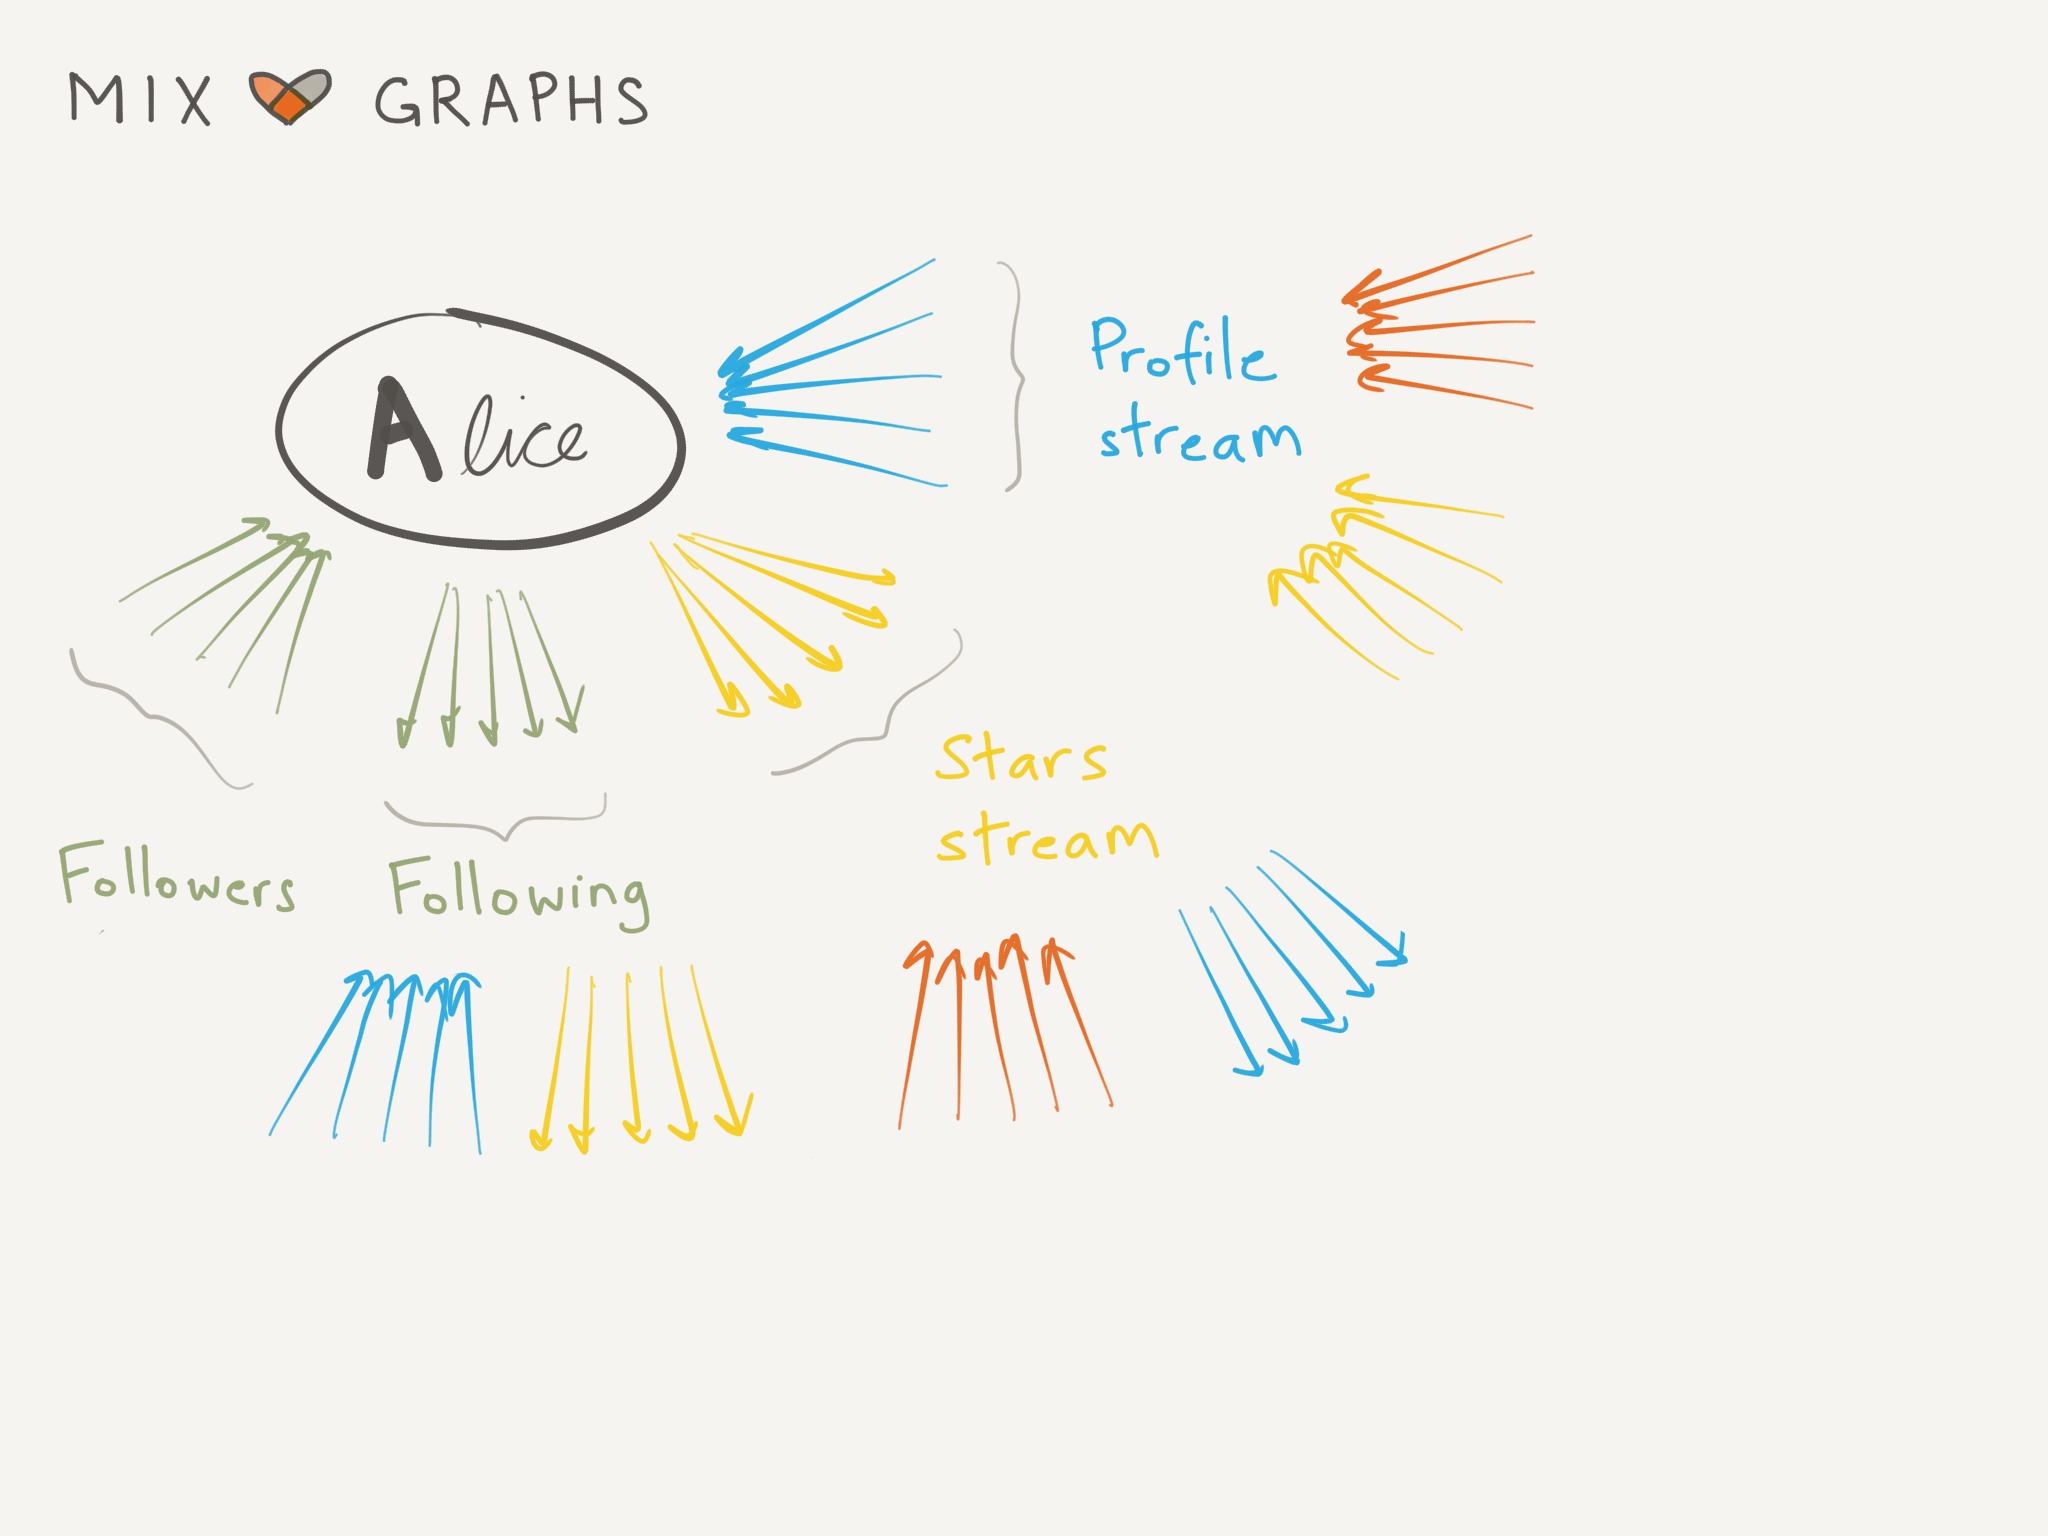 MIX GRAPHS
Alice
Profile
stream
Stars
stream
Followers
Following